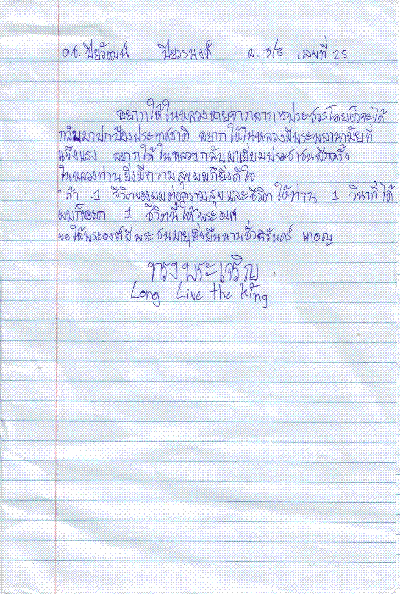 ด.ช. ปิยวัฒน์ ปิยวรพงศ์ ม. 3/8 เลขที่ 25
อยากให้ในหลวงหายจากอาการประชวรโดยเร็วจะได้
กลับมาปกป้องประเทศชาติ อยากให้ในหลวงมีพระพลานามัยที่
แข็งแรง อยากให้ในหลวงกลับมาเยี่ยมประชาชนอีกครั้ง
ในหลวงท่านยิ่งมีความสุขผมก็ยิ่งดีใจ
"ถ้า 1 ชีวิตของผมต่อความสุขและชีวิตให้ท่าน 1 วินาทีได้
ผมก็ขอยก 1 ชีวิตนี้ให้พระองค์
ขอให้พระองค์มีพระชนมายุยิ่งยืนนาน
ทรงพระเจริญ
Long Live the King